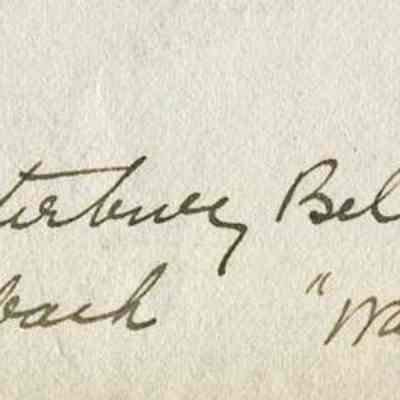 terbury Bel
bach "Wa